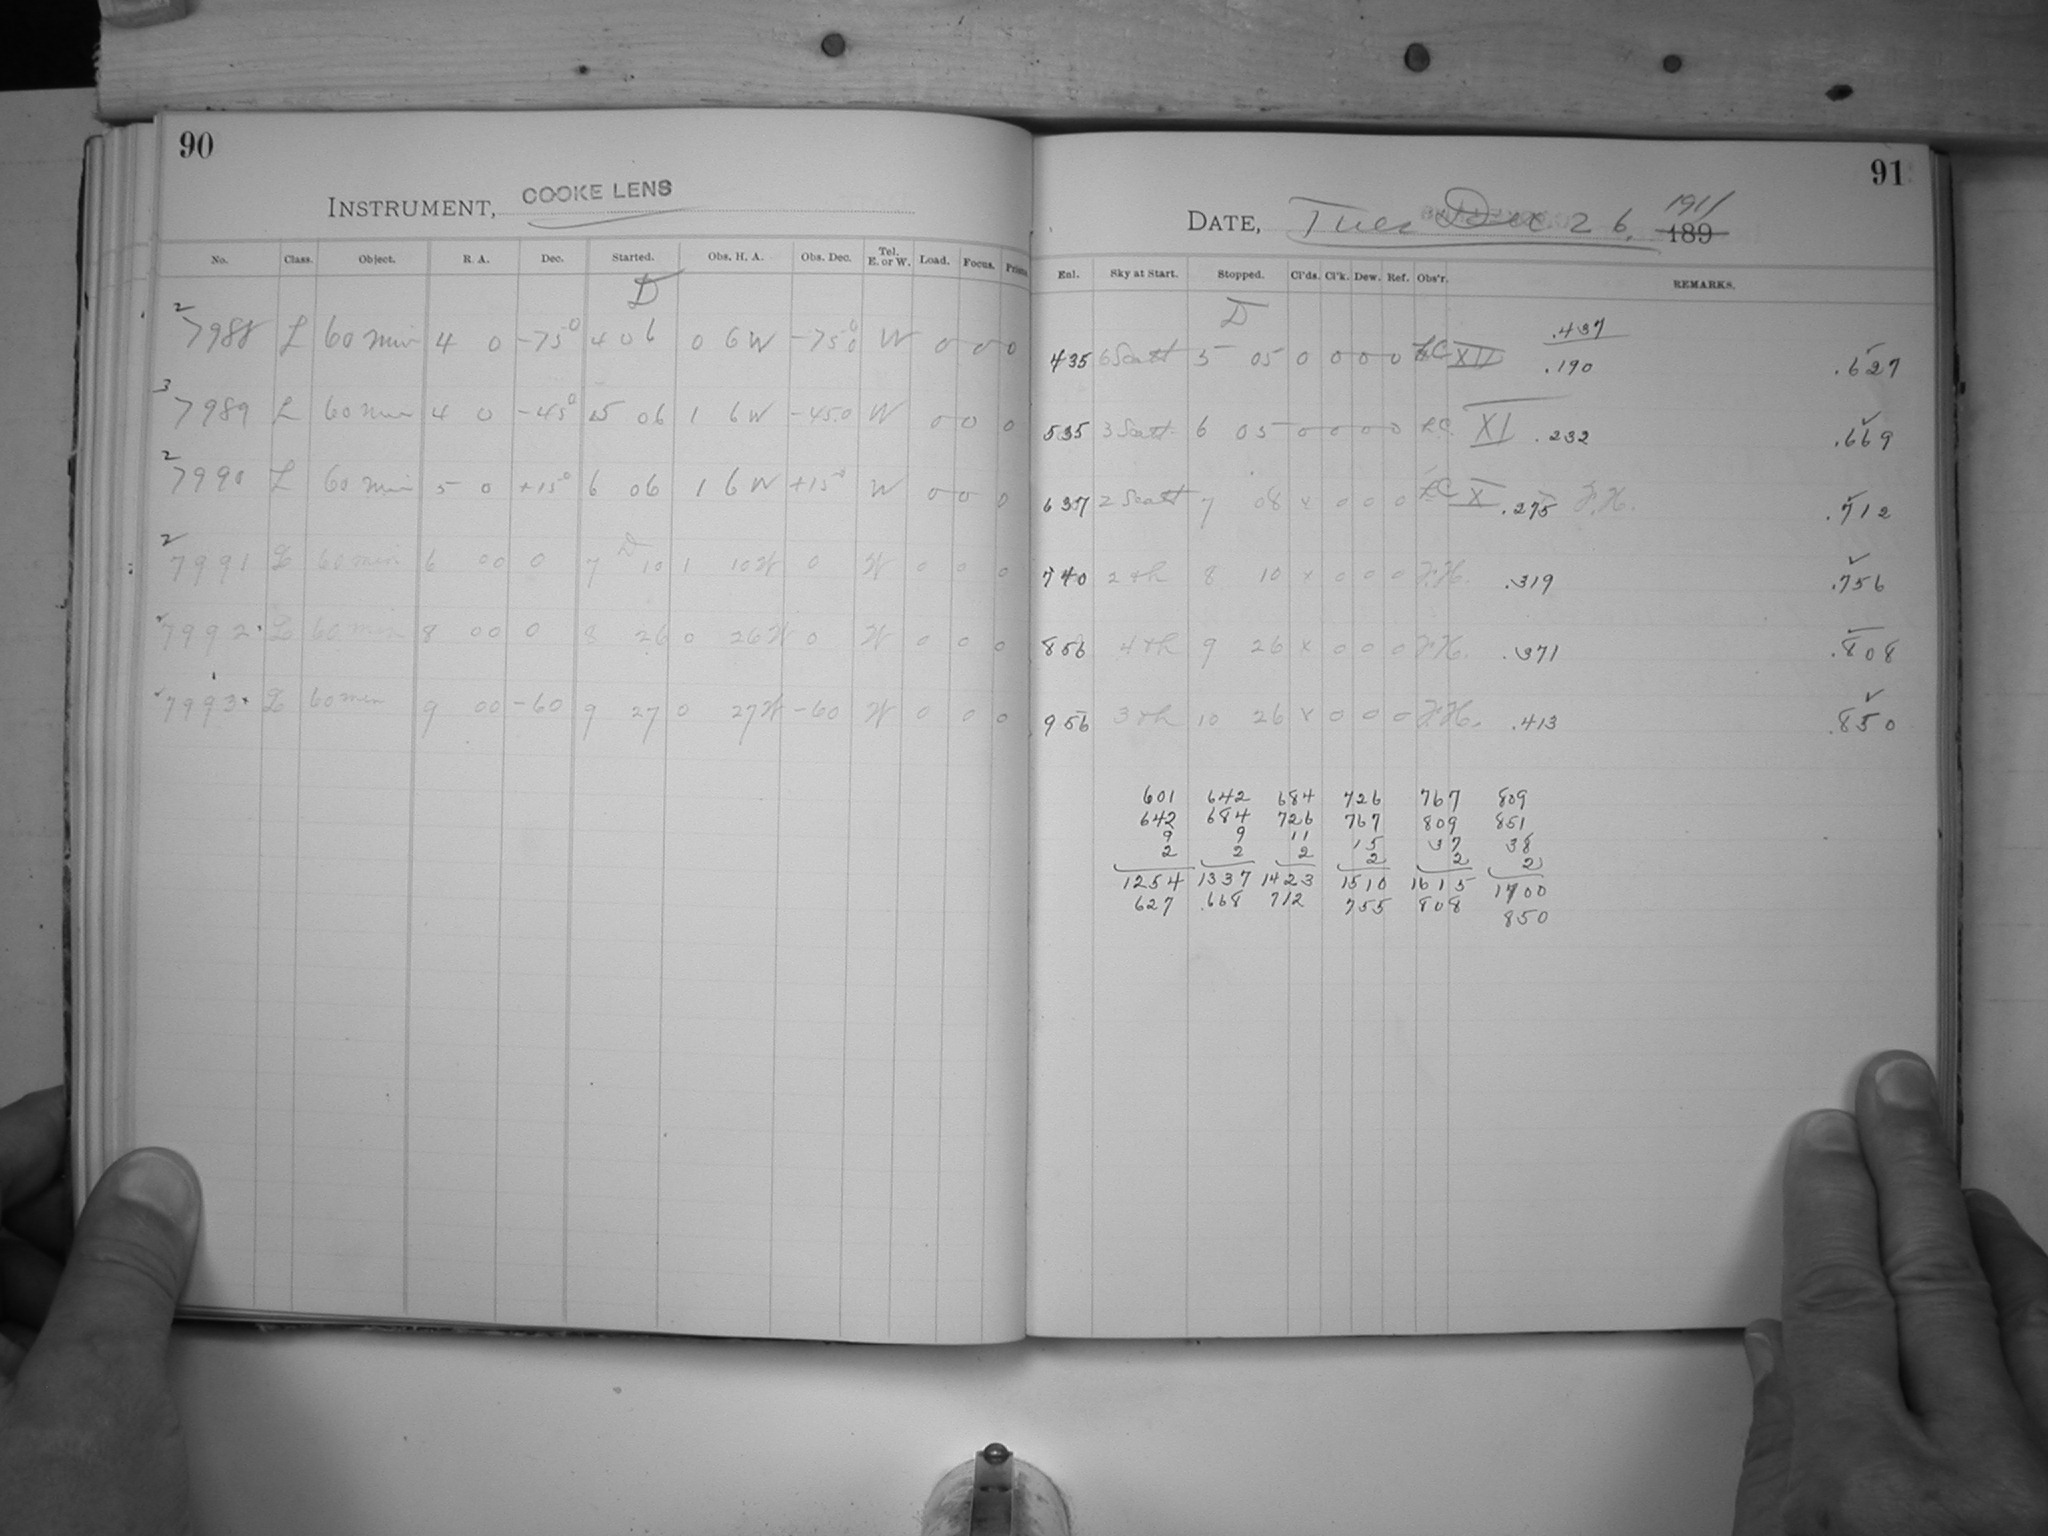 90
INSTRUMENT, COOKE LENS
No. Class. Object. R. A. Dec. Started. Obs. H. A. Obs. Dec. Tel. E. or W. Load. Focus. Prisms
D
2 7988 L 60 min 4 0 -75° 4 06 0 6 W -75°0 W 0 0 0
3 7989 L 60 min 4 0 -45° 5 06 1 6 W -45.0 W 0 0 0
2 7990 L 60 min 5 0 +15° 6 06 1 6 W +15° W 0 0 0
D
2 7991 L 60 min 6 00 0 7 10 1 10 W 0 W 0 0 0
7992 L 60 min 8 00 0 8 26 0 26 W 0 W 0 0 0
7993 L 60 min 9 00 -60 9 27 0 27 W -60 W 0 0 0
91
DATE, Tues Dec 26, 1911
189
Enl. Sky at Start. Stopped. Cl'ds. Cl'k. Dew. Ref. Obs'r. REMARKS.
D
.437
435 6 Scatt 5 05 0 0 0 0 LC XII .190 .627
535 3 Scatt 6 05 0 0 0 0 LC. XI .232 .669
637 2 Scatt 7 08 x 0 0 0 LC X .275 F.H. .712
740 2 th 8 10 x 0 0 0 F.H. .319 .756
856 4 th 9 26 x 0 0 0 F.H. .371 .808
956 3 th 10 26 x 0 0 0 F.H. .413 .850
601 642 684 726 767 809
642 684 726 767 809 851
9 9 11 15 37 38
2 2 2 2 2 2
1254 1337 1423 1510 1615 1700
627 .668 712 755 808 850